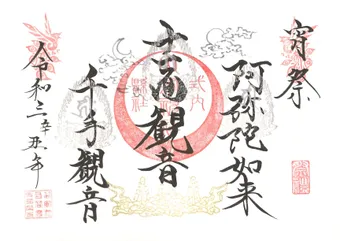 宵祭
阿弥陀如来
十一面観音
千手観音
令和三辛丑年